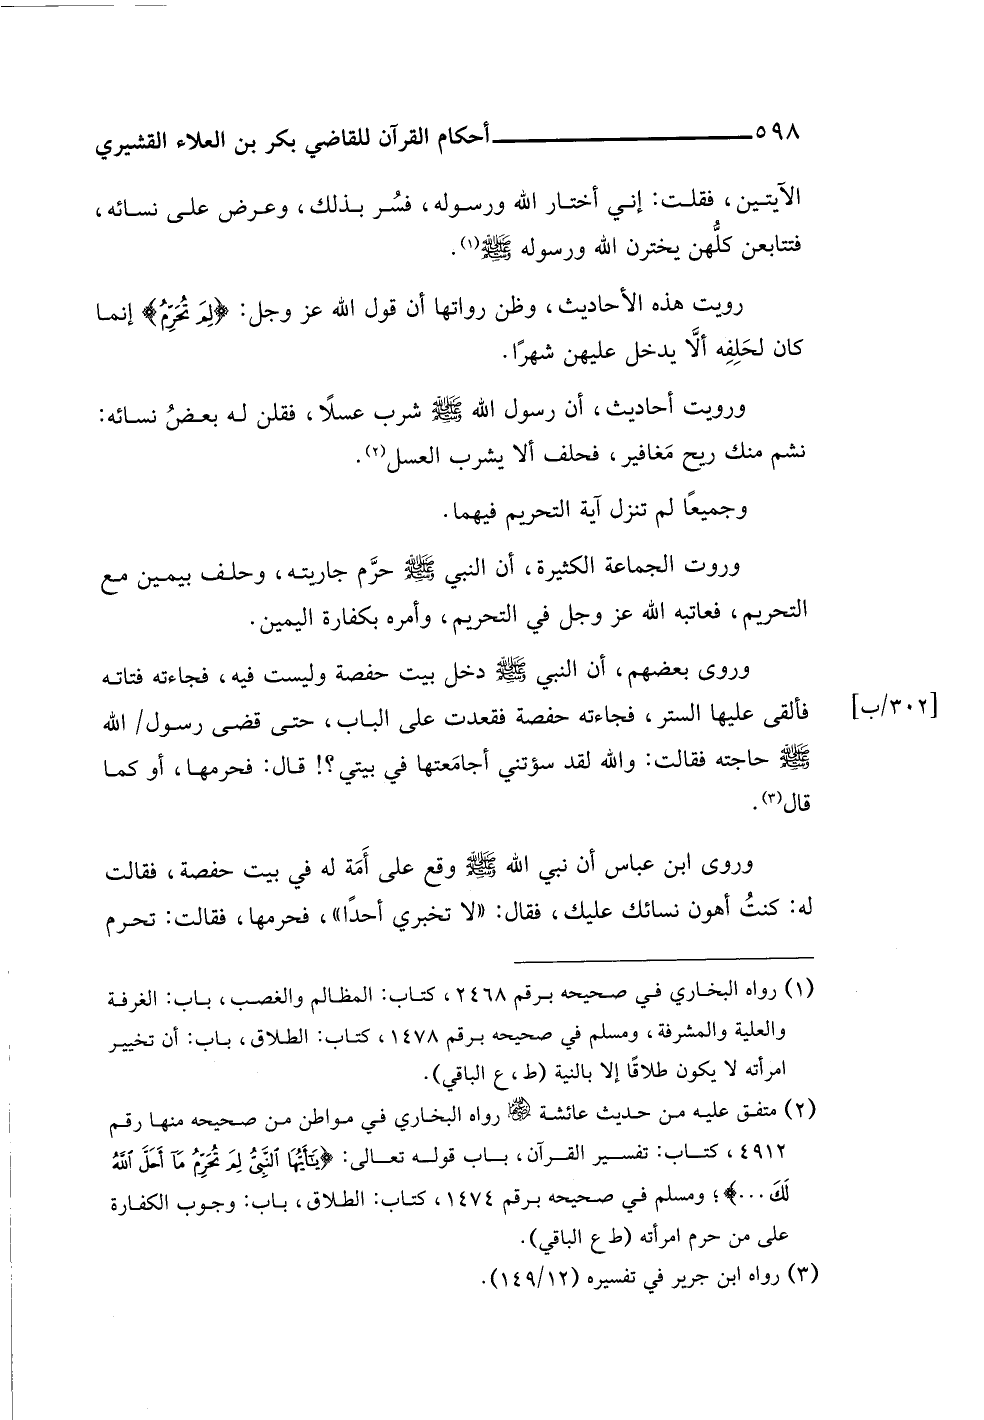 ٥٩٨ أحكام القرآن للقاضي بكر بن العلاء القشيري
الآيتين، فقلت: إني أختار الله ورسوله، فسُر بذلك، وعرض على نسائه،
فتتابعن كلُّهن يخترن الله ورسوله ﷺ(١).
رويت هذه الأحاديث، وظن رواتها أن قول الله عز وجل: ﴿لِمَ تُحَرِّمُ﴾ إنما
كان لحَلِفِه ألَّا يدخل عليهن شهرًا.
ورويت أحاديث، أن رسول الله ﷺ شرب عسلًا، فقلن له بعضُ نسائه:
نشم منك ريح مَغافير، فحلف ألا يشرب العسل(٢).
وجميعًا لم تنزل آية التحريم فيهما.
وروت الجماعة الكثيرة، أن النبي ﷺ حرَّم جاريته، وحلف بيمين مع
التحريم، فعاتبه الله عز وجل في التحريم، وأمره بكفارة اليمين.
وروى بعضهم، أن النبي ﷺ دخل بيت حفصة وليست فيه، فجاءته فتاته
فألقى عليها الستر، فجاءته حفصة فقعدت على الباب، حتى قضى رسول/ الله [٣٠٢/ب]
ﷺ حاجته فقالت: والله لقد سؤتني أجامَعتها في بيتي؟! قال: فحرمها، أو كما
قال(٣).
وروى ابن عباس أن نبي الله ﷺ وقع على أَمَة له في بيت حفصة، فقالت
له: كنتُ أهون نسائك عليك، فقال: «لا تخبري أحدًا»، فحرمها، فقالت: تحرم
(١) رواه البخاري في صحيحه برقم ٢٤٦٨، كتاب: المظالم والغصب، باب: الغرفة
والعلية والمشرفة، ومسلم في صحيحه برقم ١٤٧٨، كتاب: الطلاق، باب: أن تخيير
امرأته لا يكون طلاقًا إلا بالنية (ط، ع الباقي).
(٢) متفق عليه من حديث عائشة رضي الله عنها رواه البخاري في مواطن من صحيحه منها رقم
٤٩١٢، كتاب: تفسير القرآن، باب قوله تعالى: ﴿يَٰٓأَيُّهَا ٱلنَّبِيُّ لِمَ تُحَرِّمُ مَآ أَحَلَّ ٱللَّهُ
لَكَ...﴾؛ ومسلم في صحيحه برقم ١٤٧٤، كتاب: الطلاق، باب: وجوب الكفارة
على من حرم امرأته (ط ع الباقي).
(٣) رواه ابن جرير في تفسيره (١٤٩/١٢).